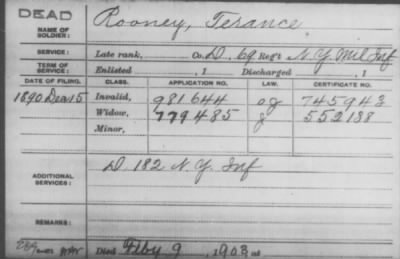 DEAD
NAME OF SOLDIER: Rooney, Terance
SERVICE: Late rank, Co. D, 69 Reg't N.Y. Mil Inf
TERM OF SERVICE: Enlisted , 1 Discharged , 1
DATE OF FILING. CLASS. APPLICATION NO. LAW. CERTIFICATE NO.
1890 Invalid, 981644 745943
Widow, 779485 552138
Minor,
ADDITIONAL SERVICES: D 182 N.Y. Inf
REMARKS:
Died Feby 9, 1903, at